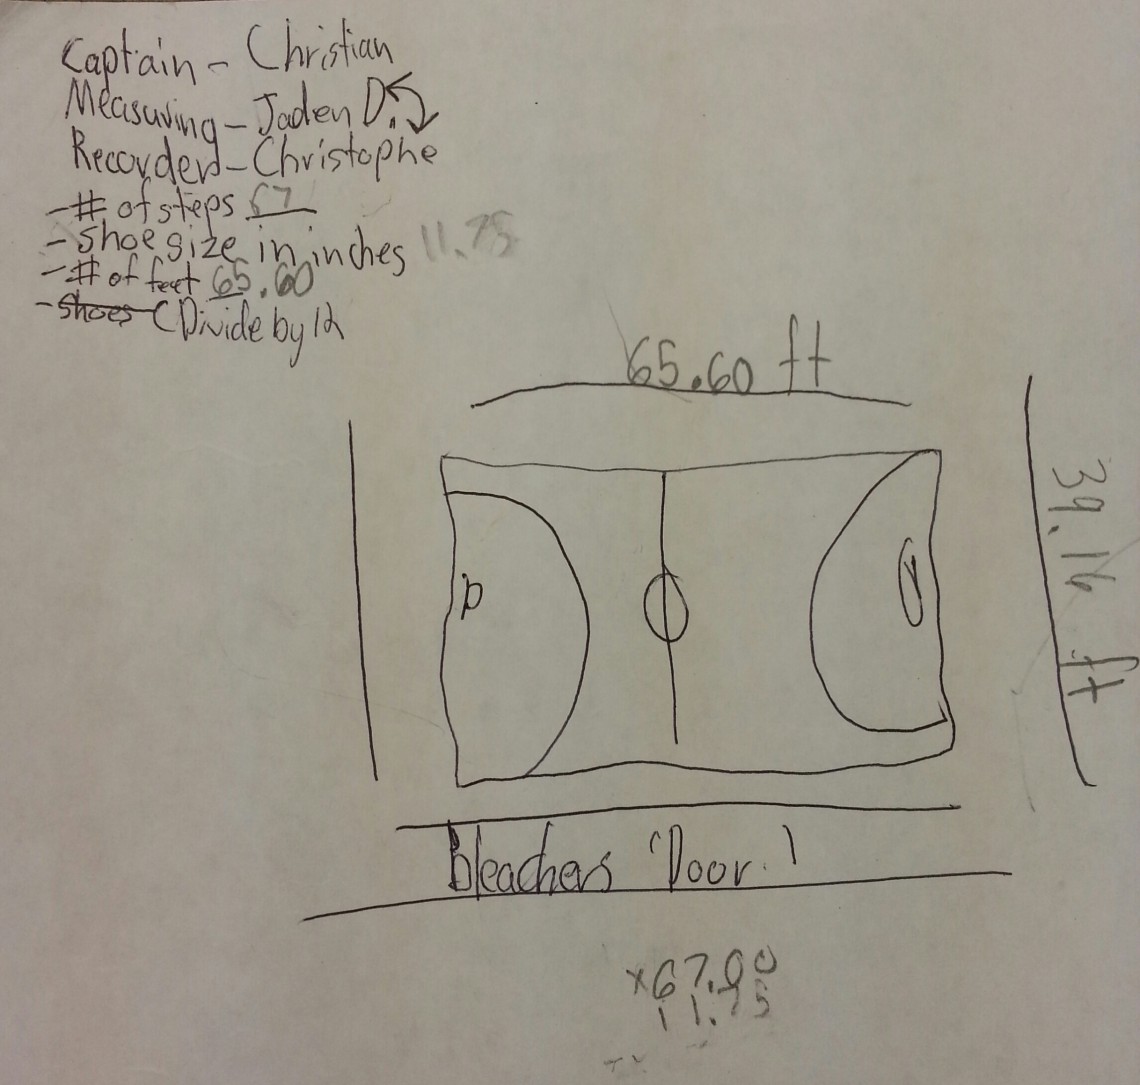 Captain - Christian
Measuring - Jaden D.
Recorder - Christophe
- # of steps 67
- Shoe size in inches 11.75
- # of feet 65.60
- Shoes (Divide by 12
65.60 ft
39.16 ft
Bleachers (Door.)
x67.00
11.75